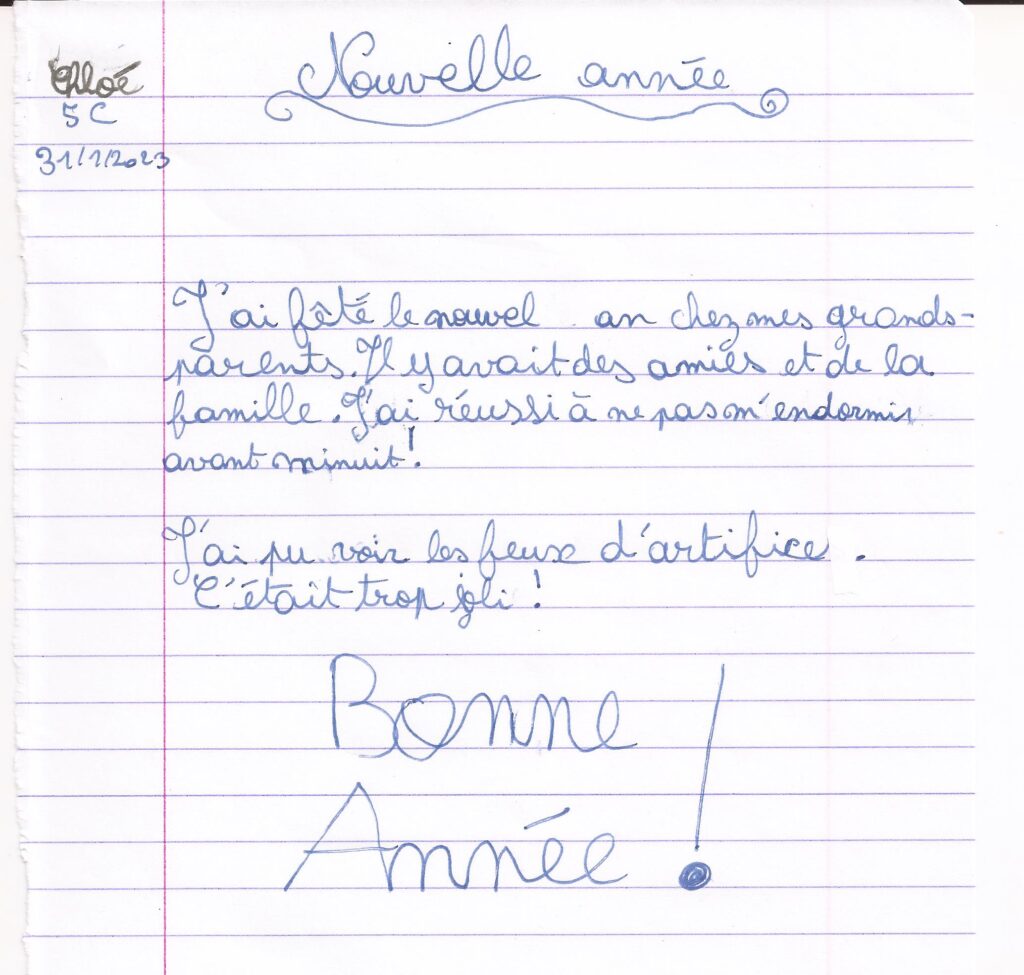 Nouvelle année
Chloé
5C
31/1/2023
J'ai fêté le nouvel an chez mes grands-
parents. Il y avait des amies et de la
famille. J'ai réussi à ne pas m'endormir
avant minuit !
J'ai pu voir les feux d'artifice .
C'était trop joli !
Bonne
Année !